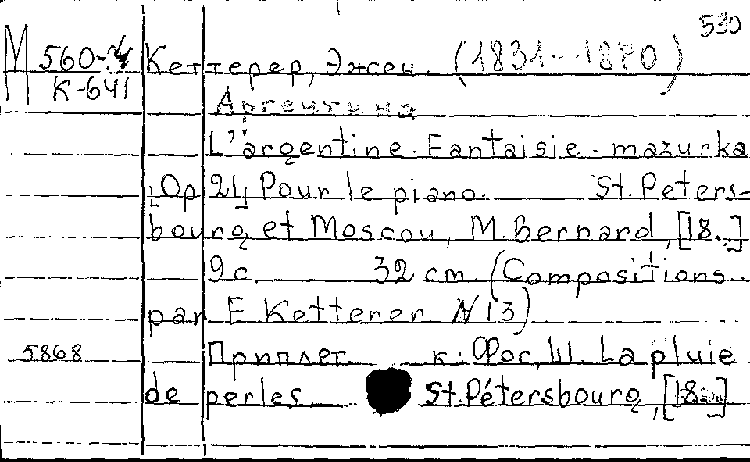 530
М 560-4 Кеттерер, Эжен. (1831-1880)
К-641
Аргентина
L'argentine. Fantaisie-mazurka
[Op 21] Pour le piano. St. Peters-
bourg et Moscou, M. Bernard, [18..]
9 с. 32 cm (Compositions
par E Ketterer N 13)
5868 Приплет. к: Фос, Ш. La pluie
de perles St. Pétersbourg, [18..]